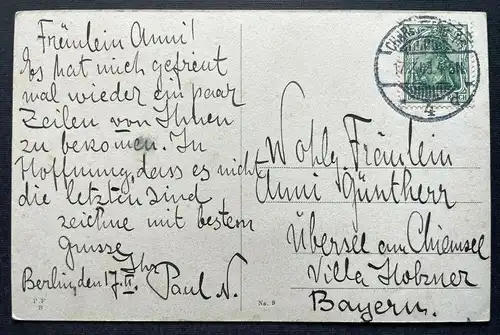 Fräulein Anni!
Es hat mich gefreut
mal wieder ein paar
Zeilen von Ihnen
zu bekommen. In
Hoffnung, dass es nicht
die letzten sind,
zeichne mit bestem
Grusse
Ihr
Berlin, den 17.II. Paul N.
P.F.
B
No. 9
Wohlg. Fräulein
Anni Güntherr
Übersee am Chiemsee
Villa Holzner
Bayern.